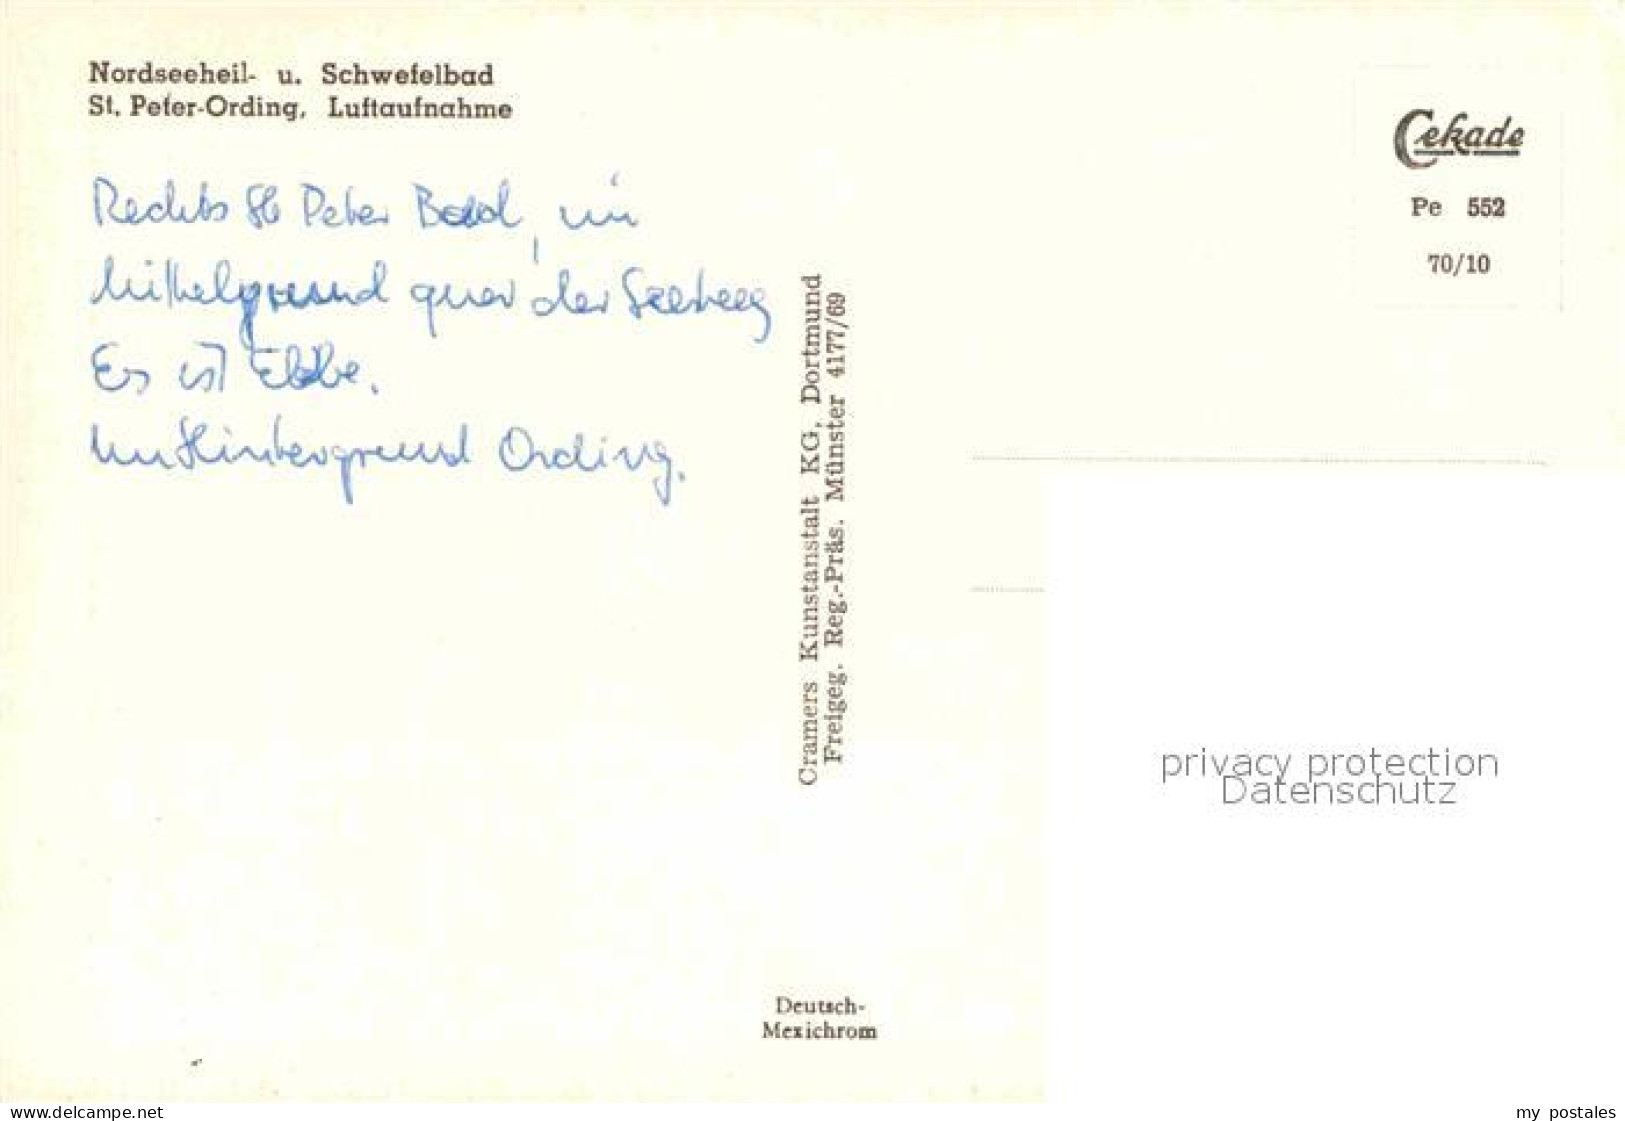 Nordseeheil- u. Schwefelbad
St. Peter-Ording, Luftaufnahme
Rechts St Peter Bad, im
Mittelgrund quer der Seesteg
Es ist Ebbe.
Im Hintergrund Ording.
Cramers Kunstanstalt KG, Dortmund
Freigeg. Reg.-Präs. Münster 4177/69
Cekade
Pe 552
70/10
privacy protection
Datenschutz
Deutsch-
Mexichrom
www.delcampe.net
my_postales